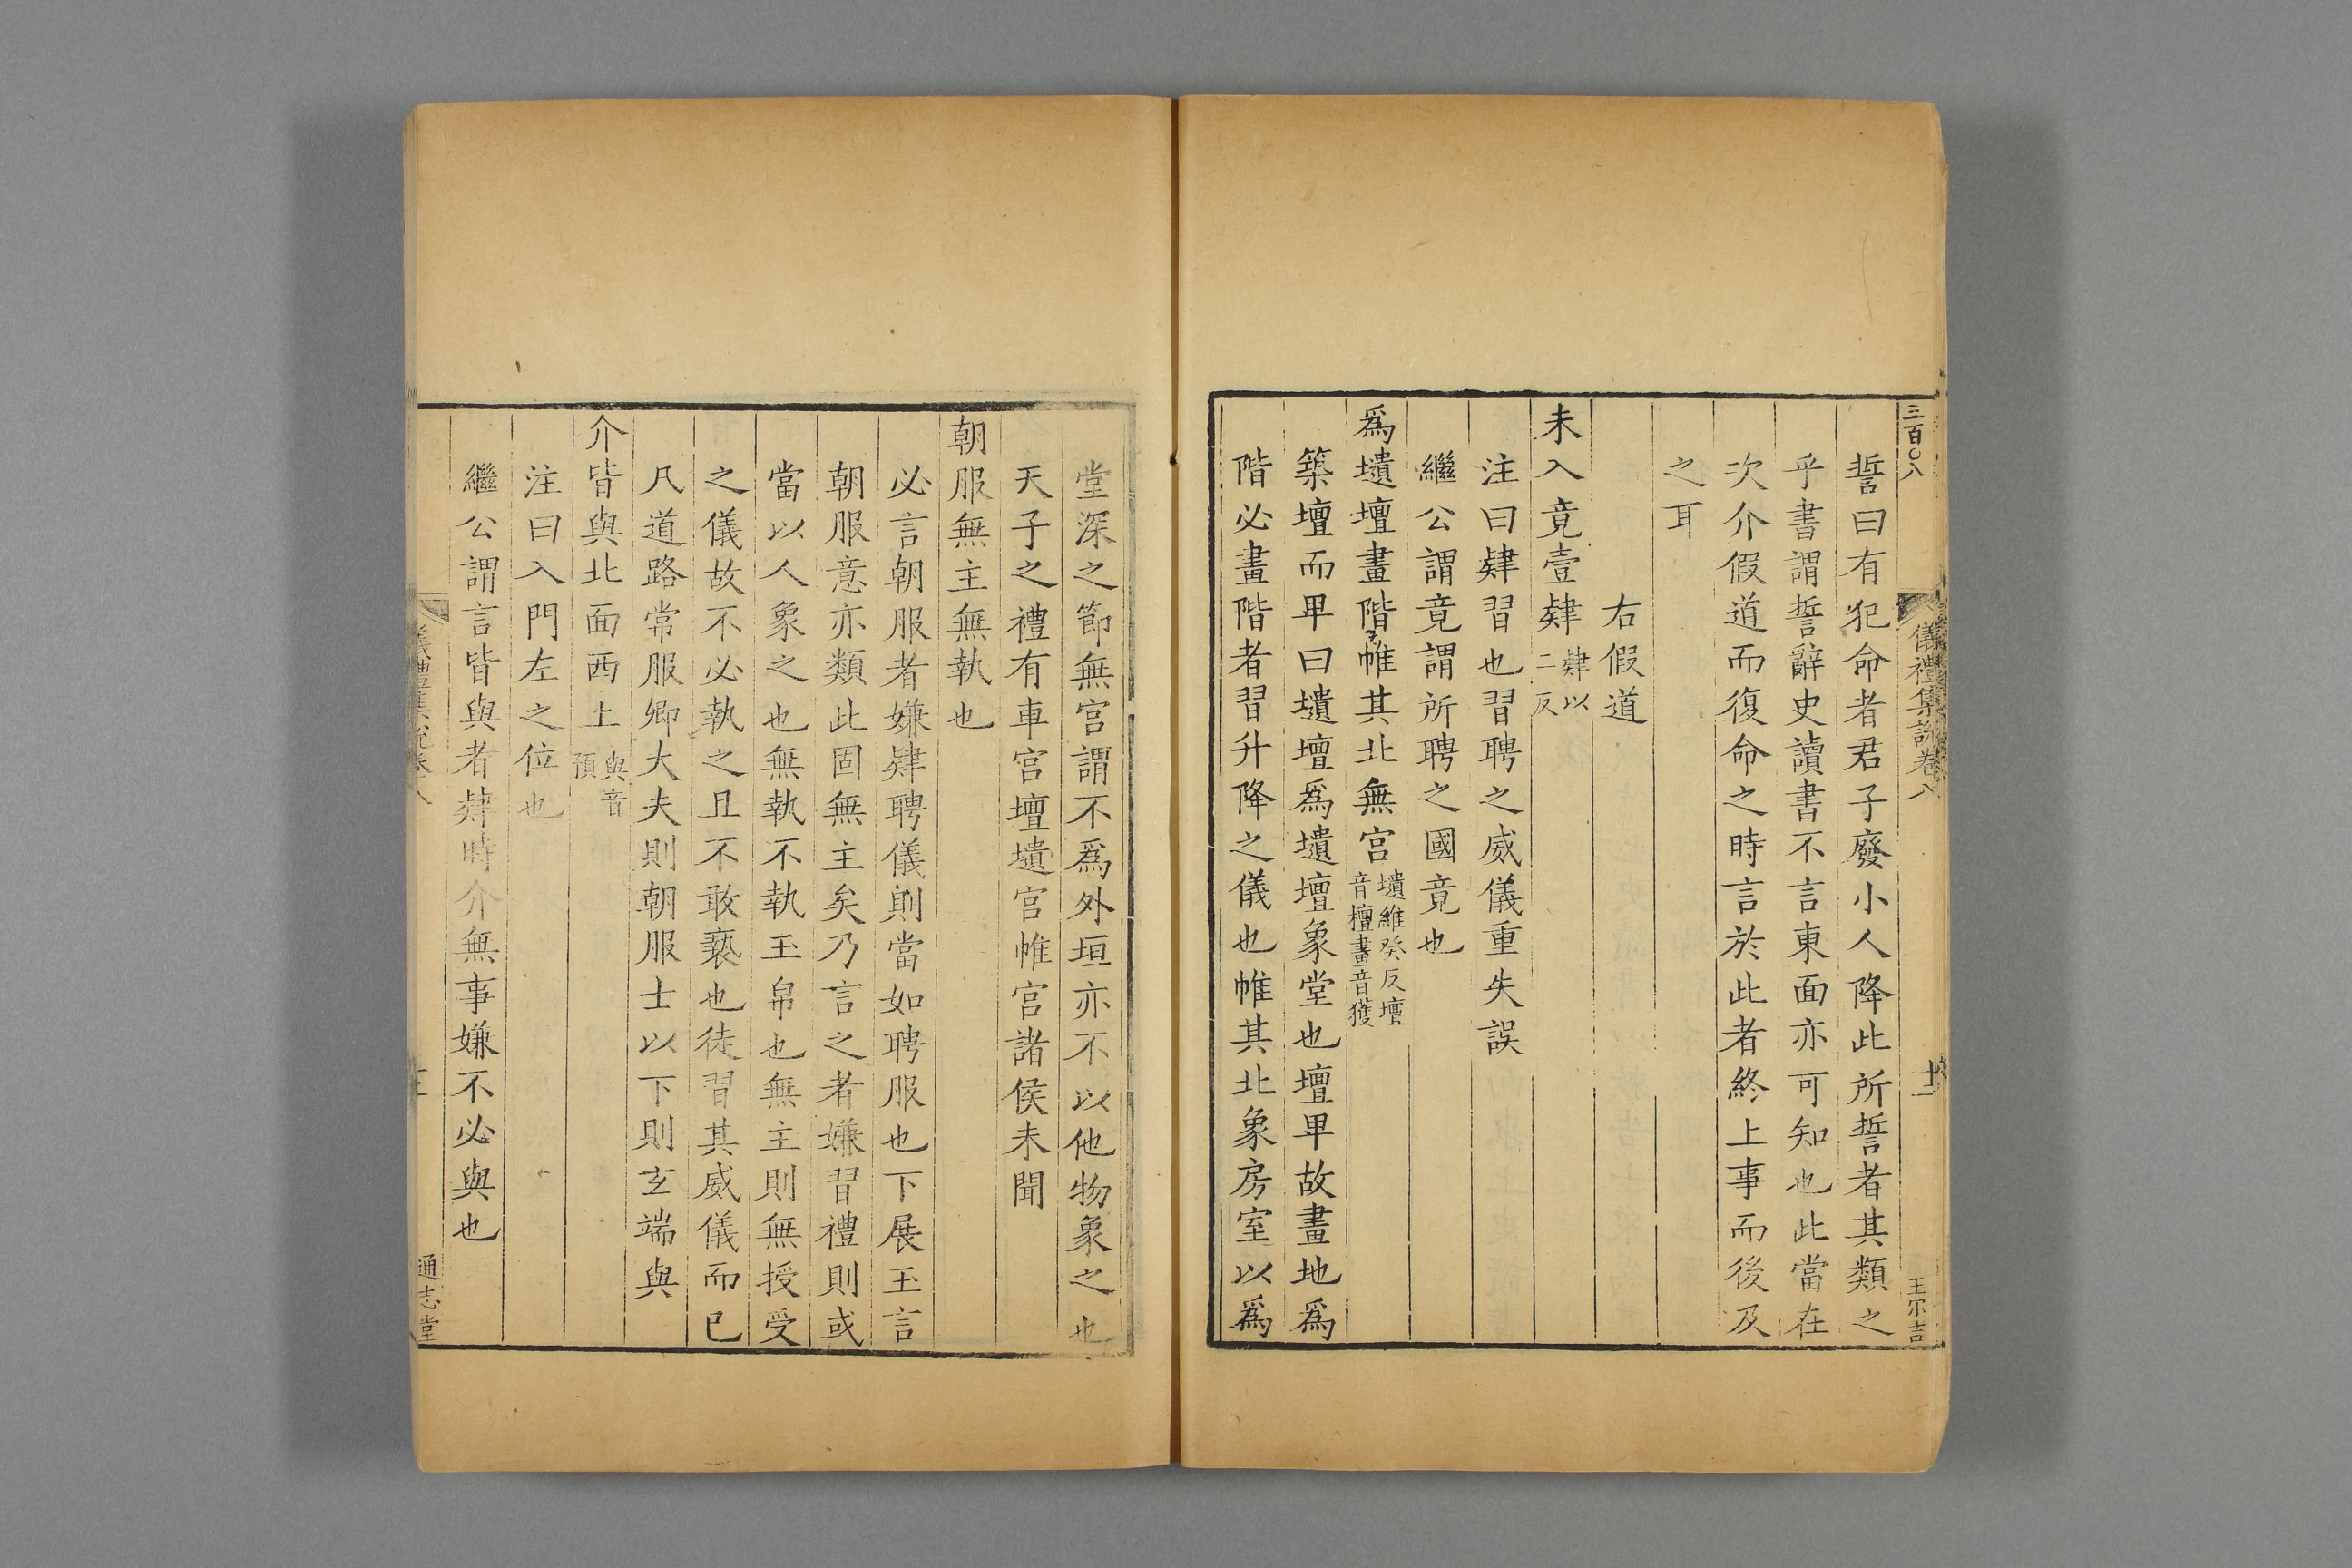 三百〇八
儀禮集說卷八
十一
王尔吉
誓曰有犯命者君子廢小人降此所誓者其類之
乎書謂誓辭史讀書不言東面亦可知也此當在
次介假道而復命之時言於此者終上事而後及
之耳
右假道
未入竟壹肄肄以二反
注曰肄習也習聘之威儀重失誤
繼公謂竟謂所聘之國竟也
爲壝壇畫階帷其北無宮壝維癸反壇音檀畫音獲
築壇而卑曰壝壇爲壝壇象堂也壇卑故畫地爲
階必畫階者習升降之儀也帷其北象房室以爲
堂深之節無宮謂不爲外垣亦不以他物象之也
天子之禮有車宮壇壝宮帷宮諸侯未聞
朝服無主無執也
必言朝服者嫌肄聘儀則當如聘服也下展玉言
朝服意亦類此固無主矣乃言之者嫌習禮則或
當以人象之也無執不執玉帛也無主則無授受
之儀故不必執之且不敢褻也徒習其威儀而已
凡道路常服卿大夫則朝服士以下則玄端與
介皆與北面西上與音預
注曰入門左之位也
繼公謂言皆與者肄時介無事嫌不必與也
儀禮集說卷八
通志堂